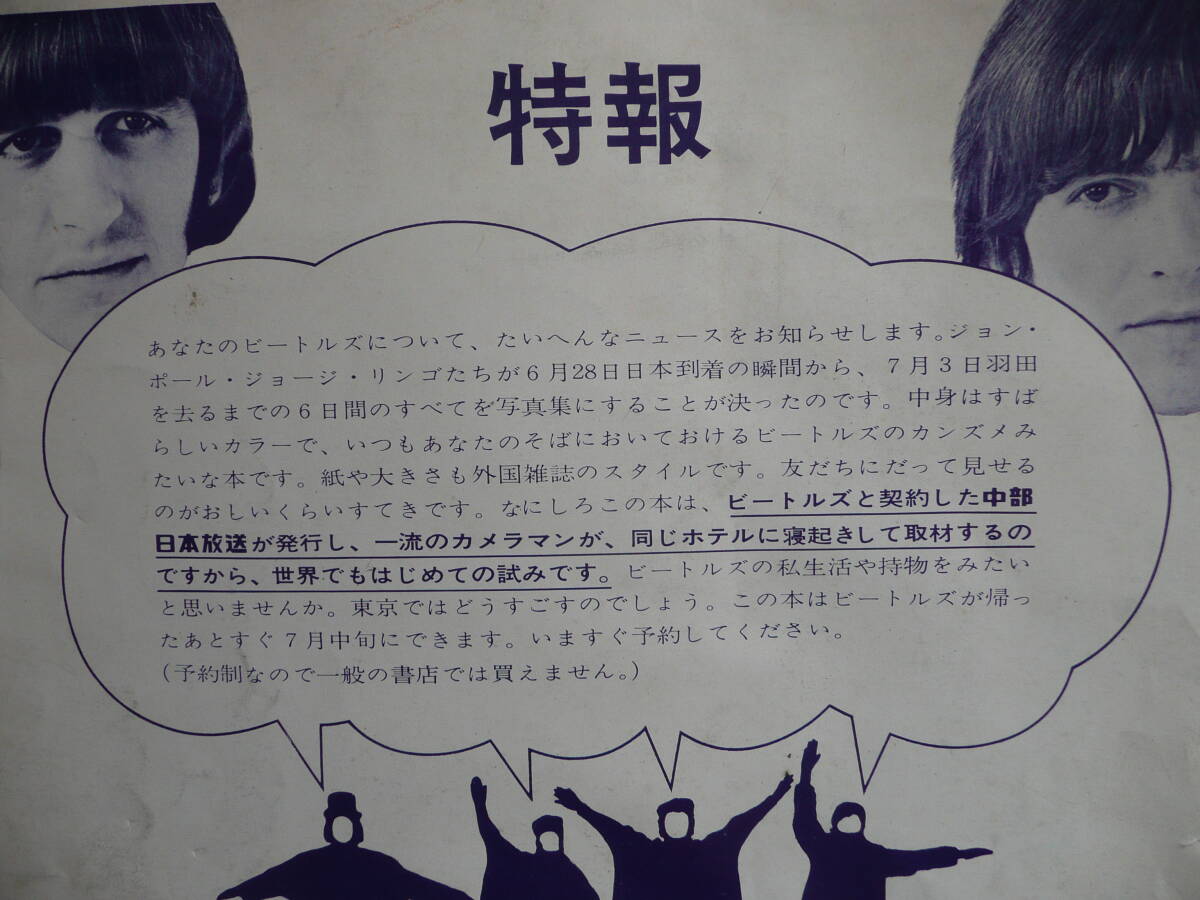 特報
あなたのビートルズについて、たいへんなニュースをお知らせします。ジョン・
ポール・ジョージ・リンゴたちが6月28日日本到着の瞬間から、7月3日羽田
を去るまでの6日間のすべてを写真集にすることが決ったのです。中身はすば
らしいカラーで、いつもあなたのそばにおいておけるビートルズのカンズメみ
たいな本です。紙や大きさも外国雑誌のスタイルです。友だちにだって見せる
のがおしいくらいすてきです。なにしろこの本は、ビートルズと契約した中部
日本放送が発行し、一流のカメラマンが、同じホテルに寝起きして取材するの
ですから、世界でもはじめての試みです。ビートルズの私生活や持物をみたい
と思いませんか。東京ではどうすごすのでしょう。この本はビートルズが帰っ
たあとすぐ7月中旬にできます。いますぐ予約してください。
(予約制なので一般の書店では買えません。)